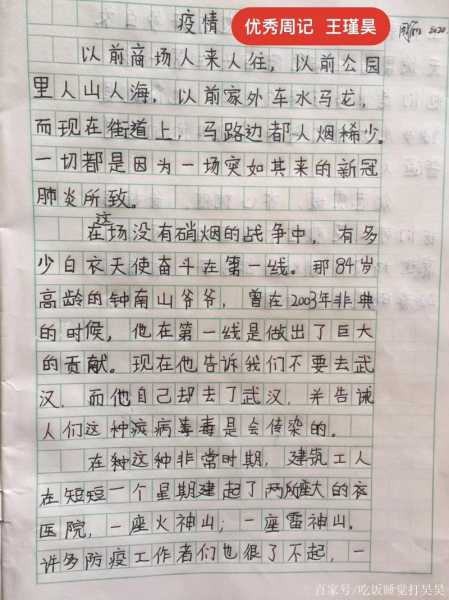 疫情
优秀周记 王瑾昊
以前商场人来人往，以前公园
里人山人海，以前家外车水马龙，
而现在街道上，马路边都人烟稀少。
一切都是因为一场突如其来的新冠
肺炎所致。
在这场没有硝烟的战争中，有多
少白衣天使奋斗在第一线。那84岁
高龄的钟南山爷爷，曾在2003年非典
的时候，他在第一线是做出了巨大
的贡献。现在他告诉我们不要去武
汉，而他自己却去了武汉，并告诫
人们这种疾病毒毒是会传染的。
在种这种非常时期，建筑工人
在短短一个星期建起了两所座大的
医院，一座火神山；一座雷神山。
许多防疫工作者们也很了不起，一
百家号/吃饭睡觉打昊昊